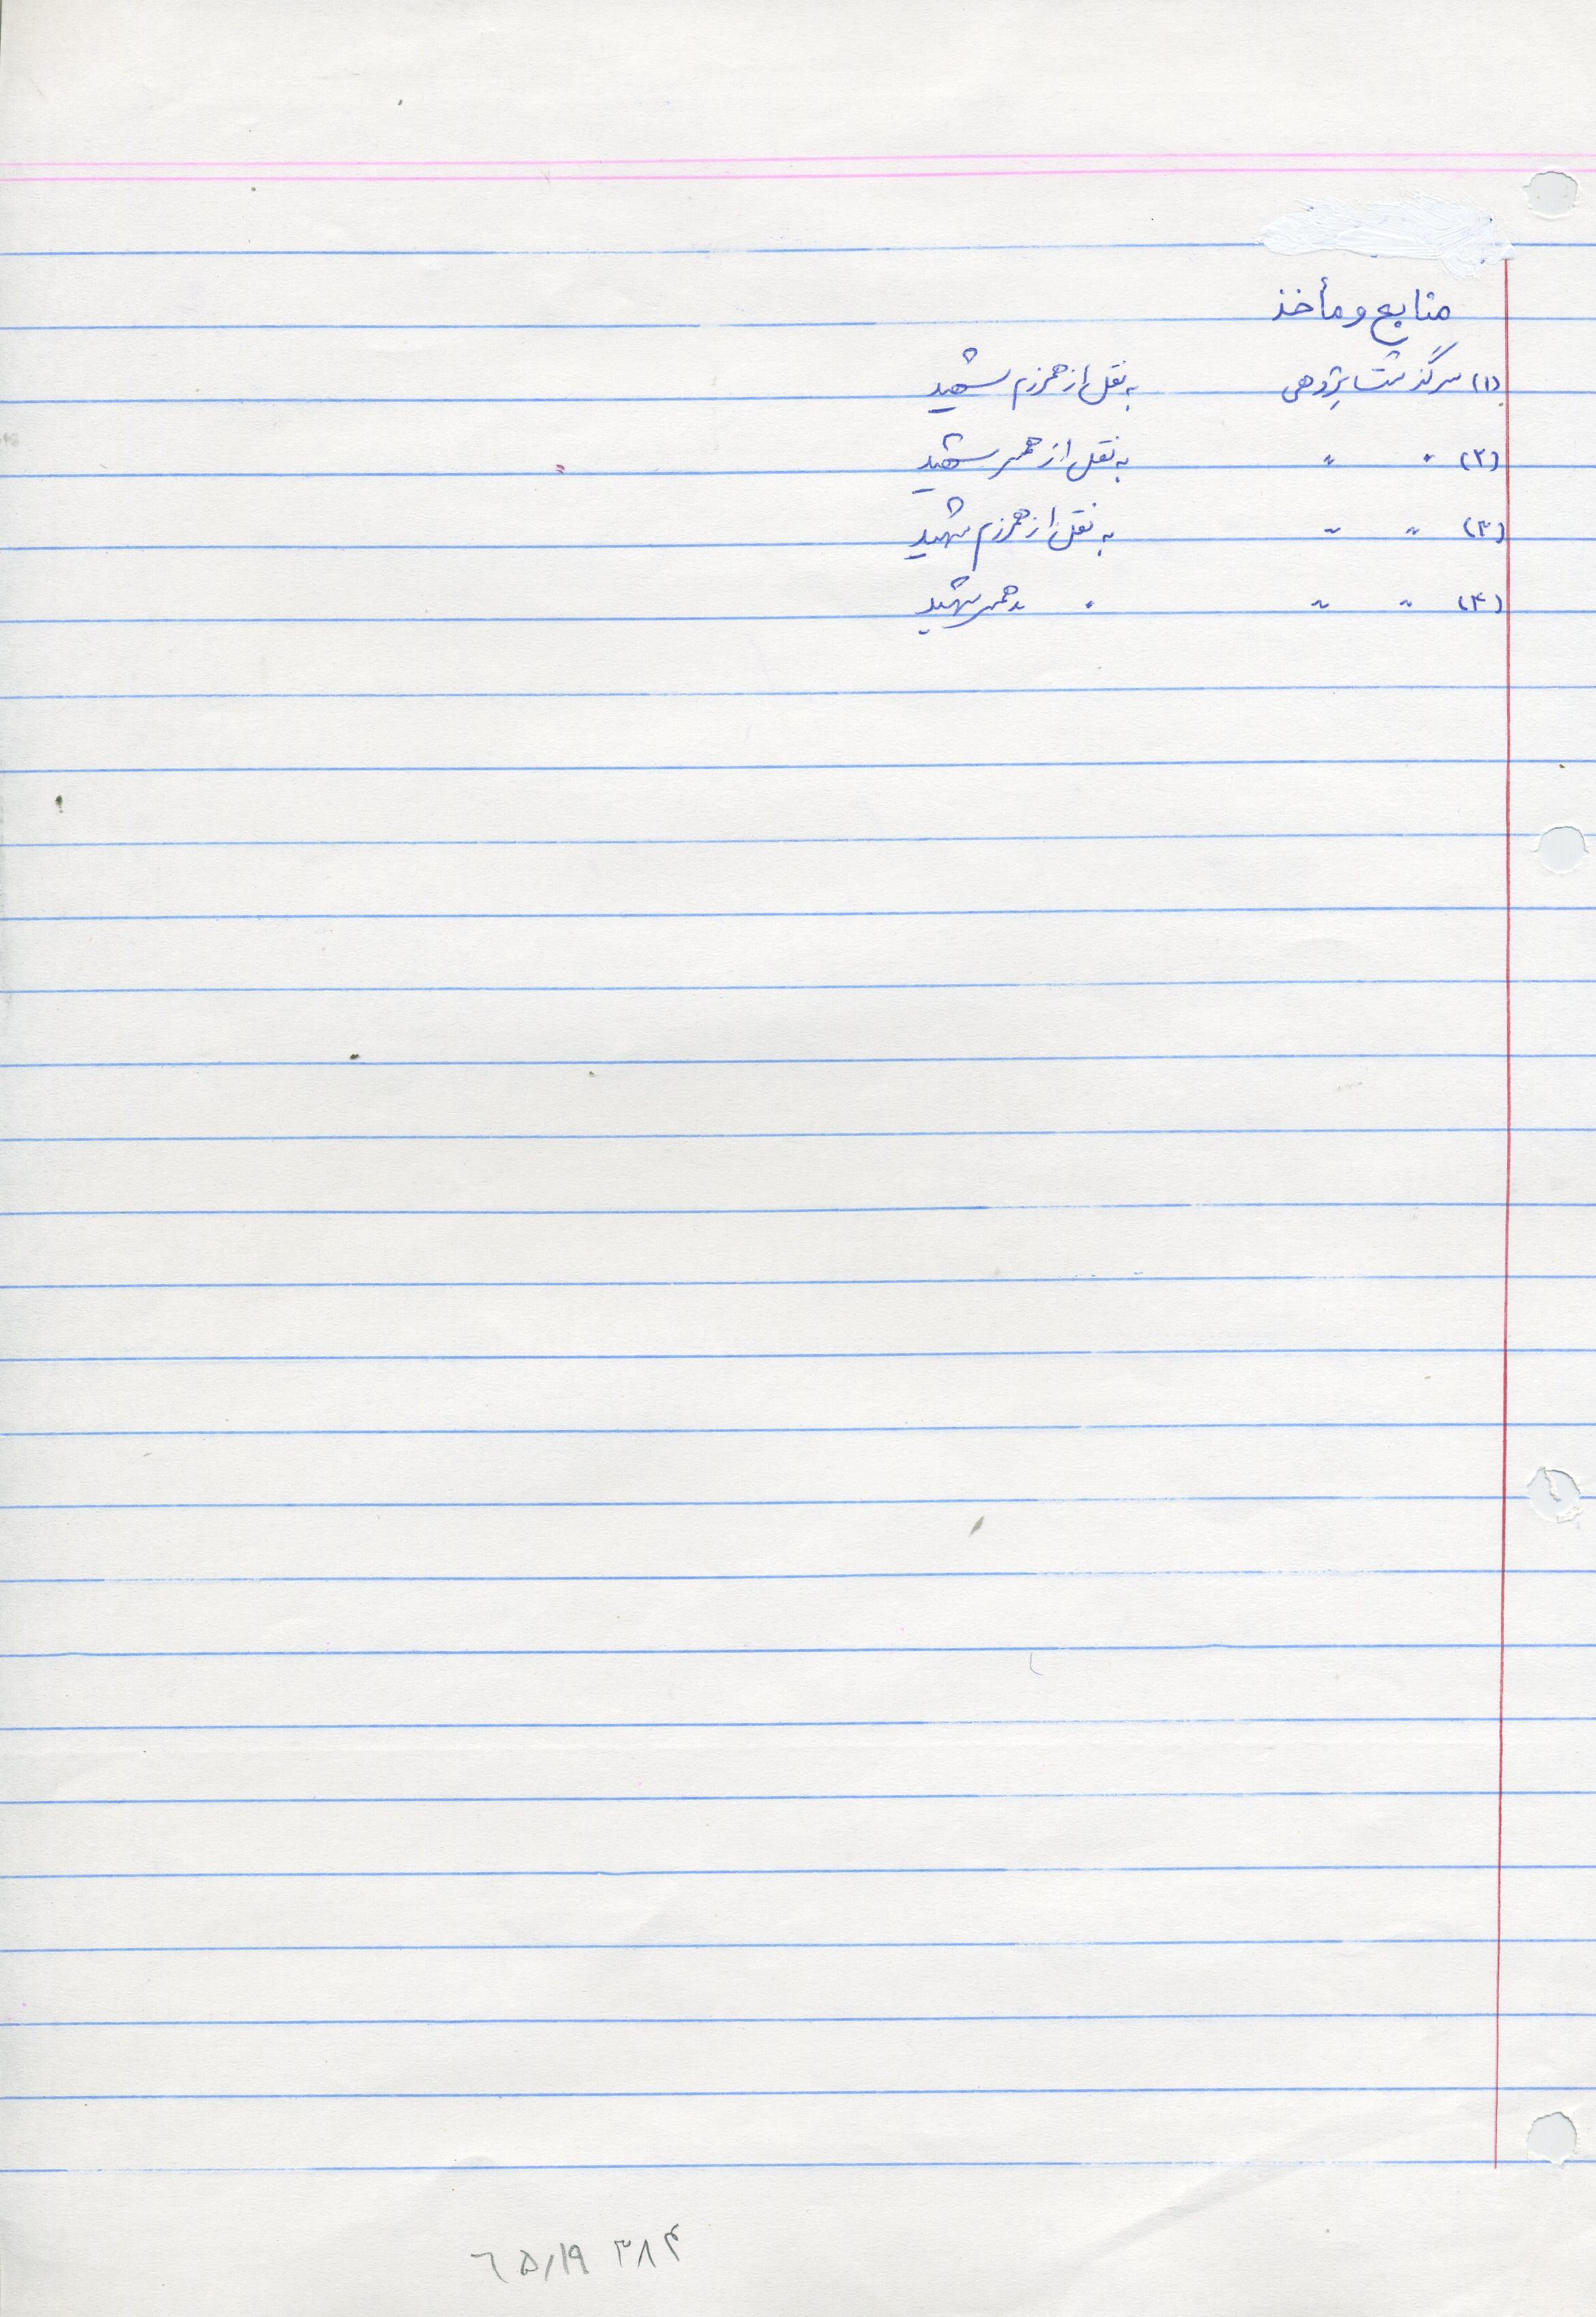 منابع و مأخذ
(۱) سرگذشت پژوهی به نقل از همرزم شهید
(۲) " " به نقل از همسر شهید
(۳) " " به نقل از همرزم شهید
(۴) " " " " همسر شهید